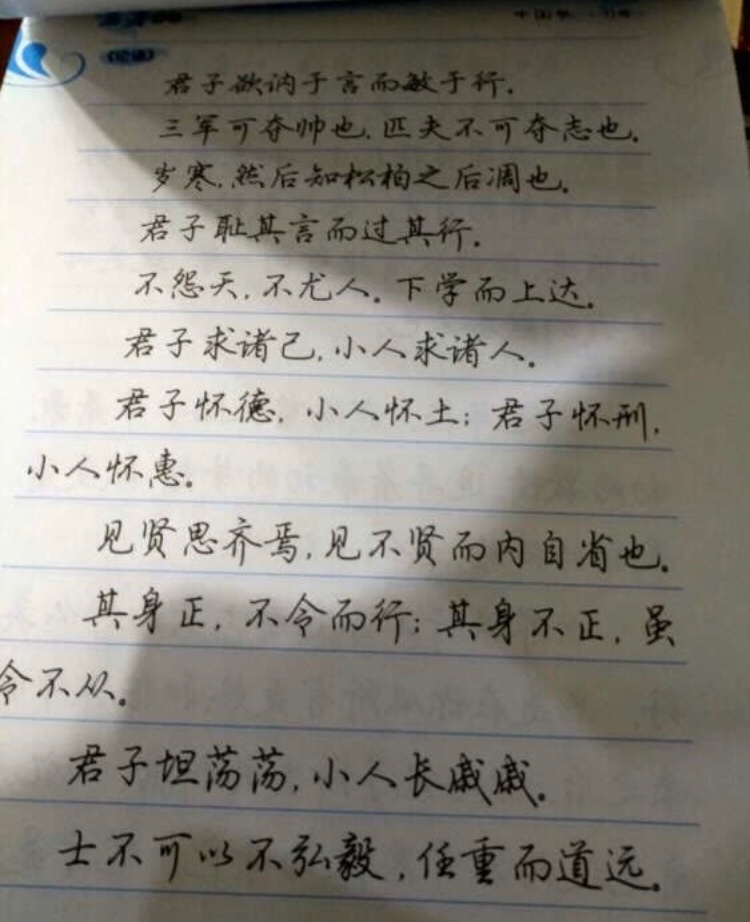 君子欲讷于言而敏于行.
三军可夺帅也,匹夫不可夺志也。
岁寒,然后知松柏之后凋也。
君子耻其言而过其行。
不怨天,不尤人。下学而上达。
君子求诸己,小人求诸人。
君子怀德,小人怀土;君子怀刑,
小人怀惠。
见贤思齐焉,见不贤而内自省也。
其身正,不令而行;其身不正,虽
令不从。
君子坦荡荡,小人长戚戚。
士不可以不弘毅,任重而道远。